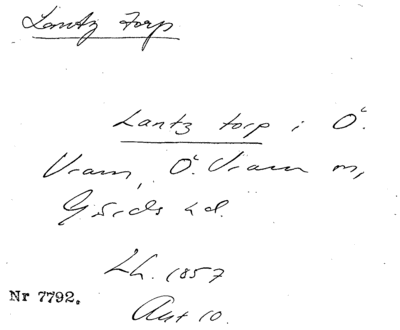 Lantz torp
Lantz torp i Ö.
Vram, Ö. Vram sn,
Gärds hd.
Lh. 1857
Nr 7792.
Akt 10.